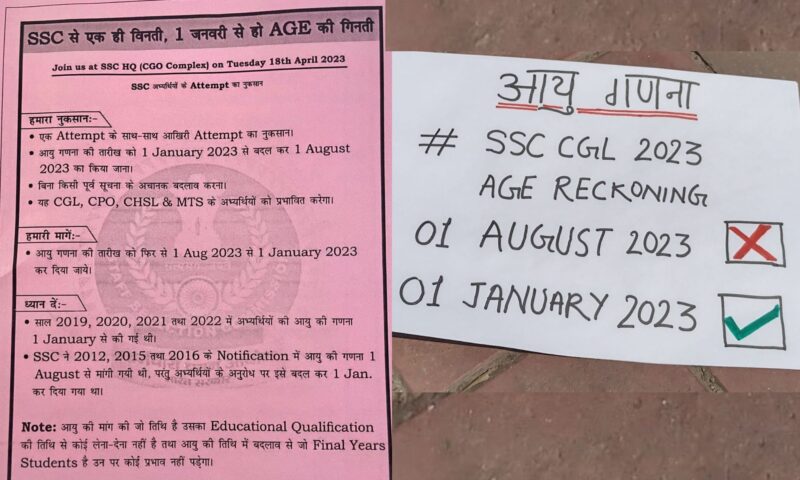 SSC से एक ही विनती, 1 जनवरी से हो AGE की गिनती
Join us at SSC HQ (CGO Complex) on Tuesday 18th April 2023
SSC अभ्यर्थियों के Attempt का नुकसान
हमारा नुकसान:-
• एक Attempt के साथ-साथ आखिरी Attempt का नुकसान।
• आयु गणना की तारीख को 1 January 2023 से बदल कर 1 August
2023 का किया जाना।
• बिना किसी पूर्व सूचना के अचानक बदलाव करना।
• यह CGL, CPO, CHSL & MTS के अभ्यर्थियों को प्रभावित करेगा।
हमारी मागें:-
• आयु गणना की तारीख को फिर से 1 Aug 2023 से 1 January 2023
कर दिया जाये।
ध्यान दें:-
• साल 2019, 2020, 2021 तथा 2022 में अभ्यर्थियों को आयु की गणना
1 January से की गई थी।
• SSC ने 2012, 2015 तथा 2016 के Notification में आयु की गणना 1
August से मांगी गयी थी, परतु अभ्यर्थियों के अनुरोध पर इसे बदल कर 1 Jan.
कर दिया गया था।
Note: आयु की मांग की जो तिथि है उसका Educational Qualification
की तिथि से कोई लेना-देना नहीं है तथा आयु की तिथि में बदलाव से जो Final Years
Students है उन पर कोई प्रभाव नहीं पड़ेगा।
आयु गणना
# SSC CGL 2023
AGE RECKONING
01 AUGUST 2023
01 JANUARY 2023